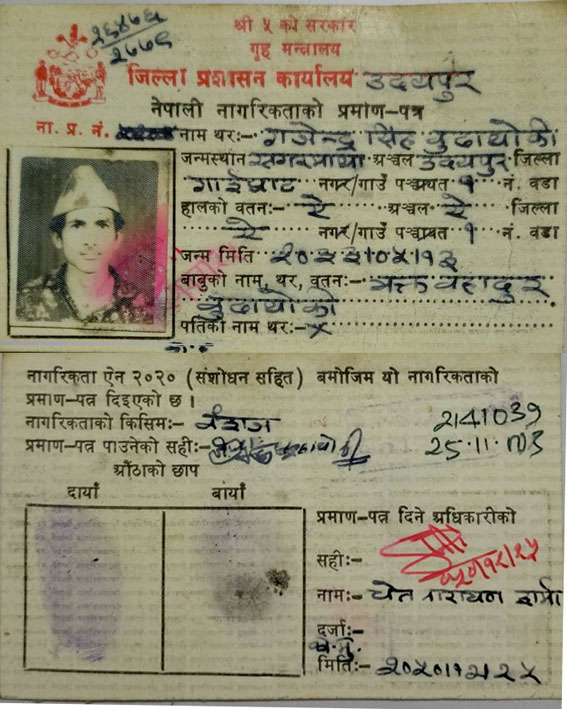 श्री ५ को सरकार
गृह मन्त्रालय
जिल्ला प्रशासन कार्यालय उदयपुर
नेपाली नागरिकताको प्रमाण-पत्र
ना. प्र. नं. नाम थर:- गजेन्द्र सिंह बुढाथोकी
जन्मस्थान सगरमाथा अञ्चल उदयपुर जिल्ला
गाईघाट नगर/गाउँ पञ्चायत १ नं. वडा
हालको वतन:- ऐ अञ्चल ऐ जिल्ला
ऐ नगर/गाउँ पञ्चायत १ नं. वडा
जन्म मिति २०३३।०५।१३
बाबुको नाम, थर, वतन:- भक्त बहादुर
बुढाथोकी
पतिको नाम थर:- x
नागरिकता ऐन २०२० (संशोधन सहित) बमोजिम यो नागरिकताको
प्रमाण-पत्र दिइएको छ ।
नागरिकताको किसिम:- वंशज
2141039
प्रमाण-पत्र पाउनेको सही:-
25.11.
औंठाको छाप
दायाँ बायाँ
प्रमाण-पत्र दिने अधिकारीको
सही:-
नाम:- नारायण शर्मा
दर्जा:-
मिति:- २०५०।१२।२५